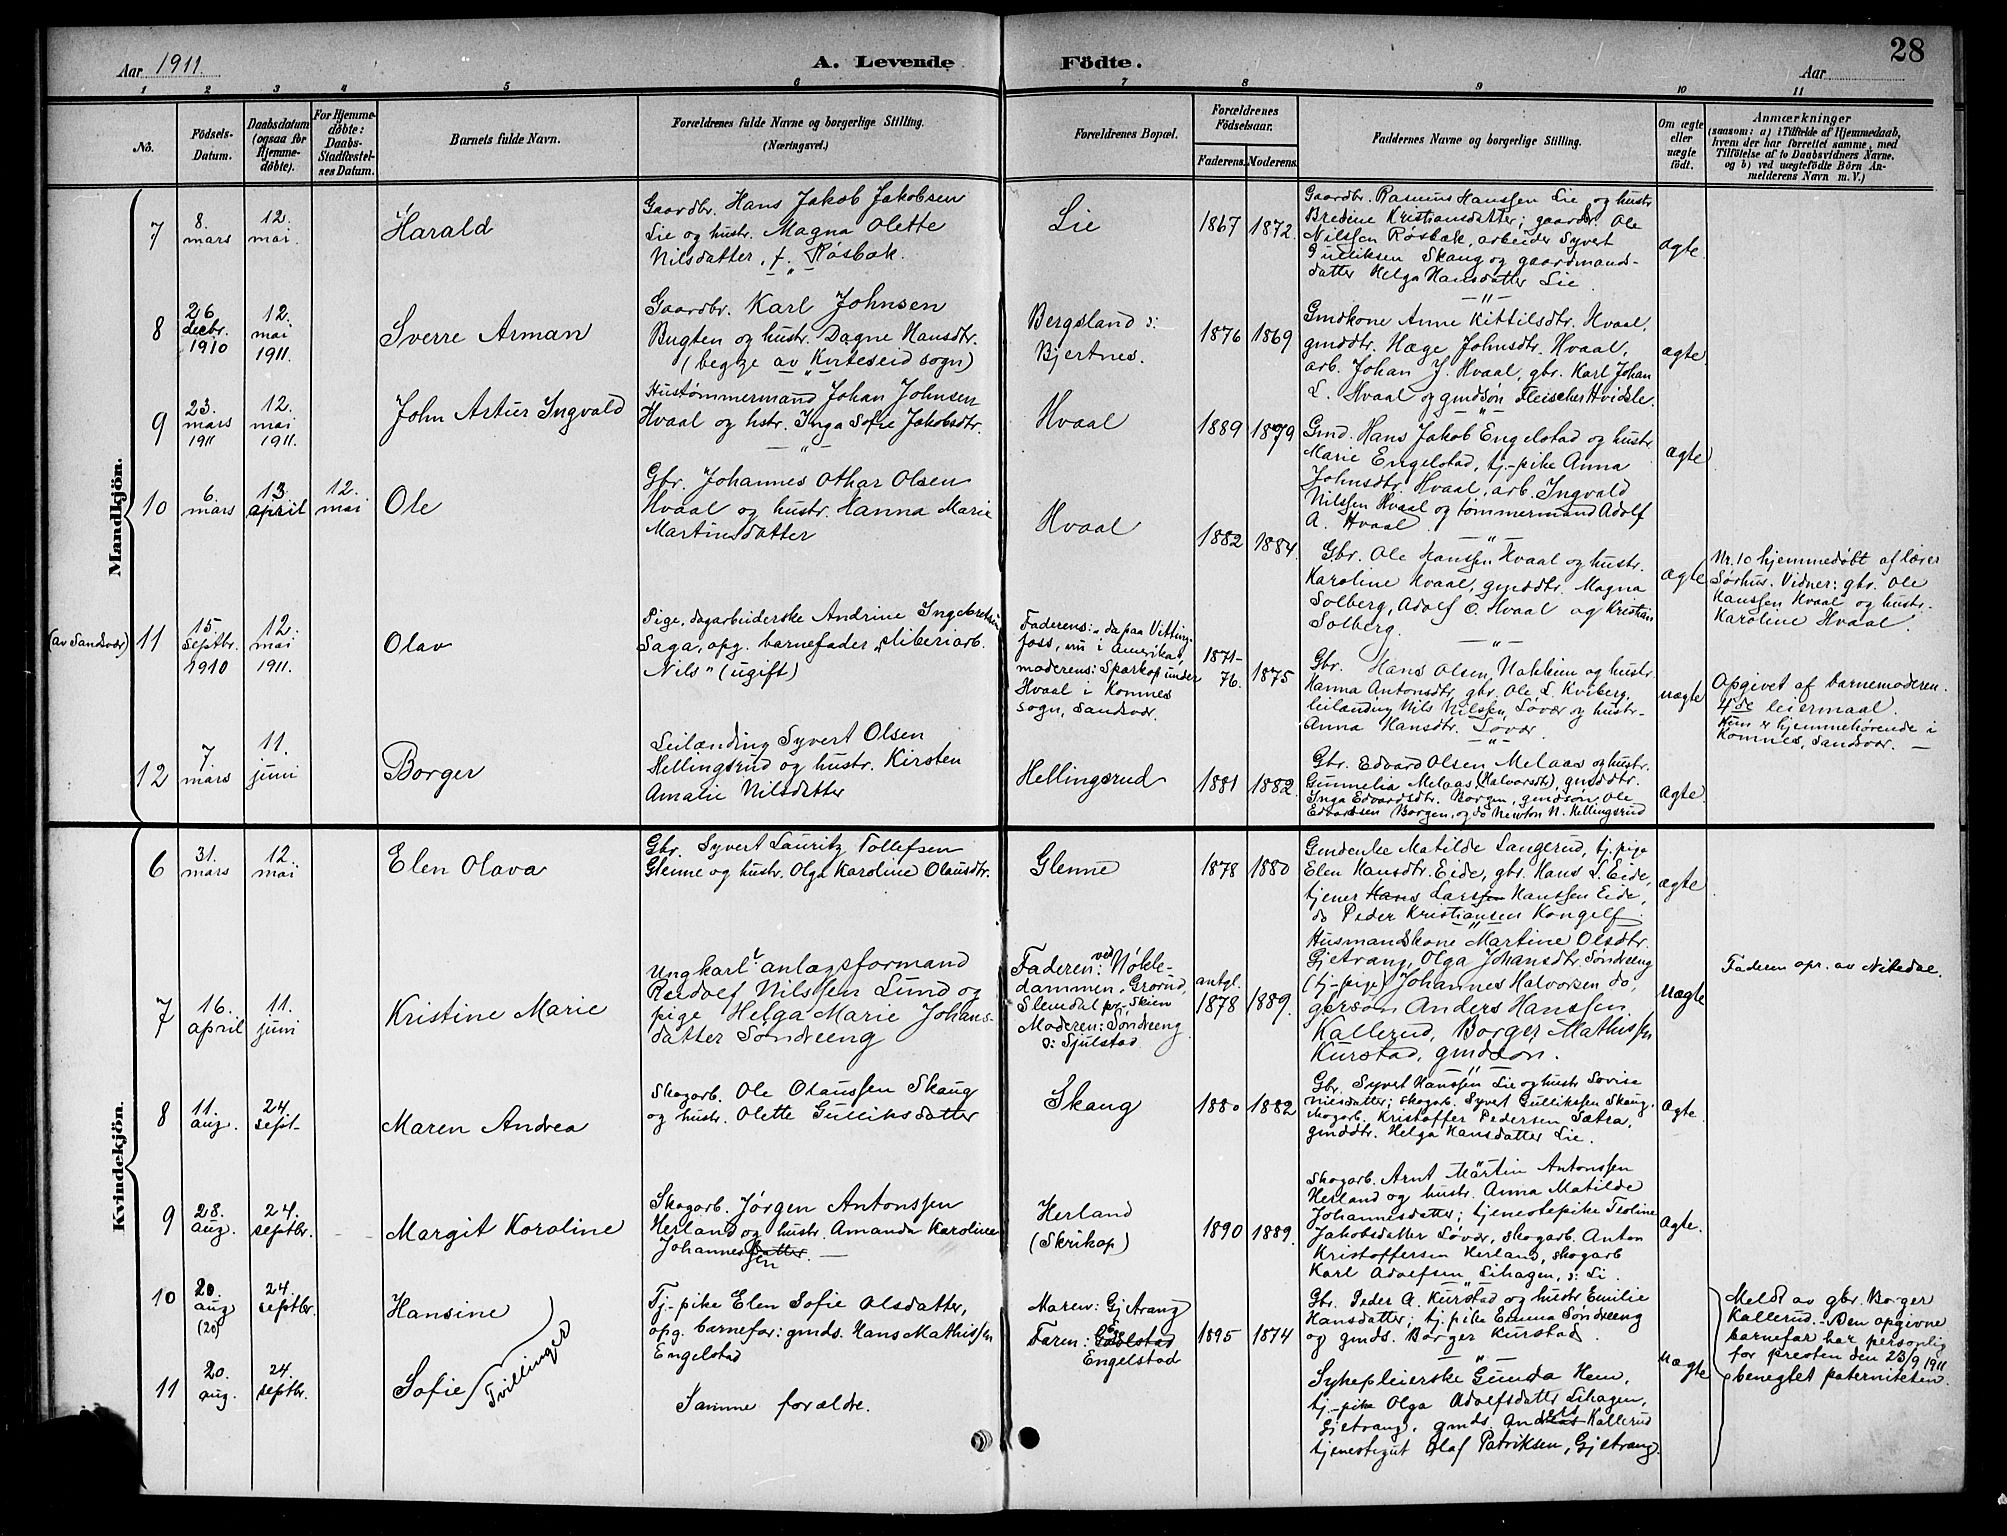 28
Aar 1911.
A. Levende Födte.
Aar
1 2 3 4 5 6 7 8 9 10 11
No.
Födsels-Datum.
Daabsdatum (ogsaa for Hjemme-döbte).
For Hjemme-döbte: Daabs-Stadfæstel-ses Datum.
Barnets fulde Navn.
Forældrenes fulde Navne og borgerlige Stilling.
(Næringsvei.)
Forældrenes Bopæl.
Forældrenes Födselsaar.
Faderens. Moderens.
Faddernes Navne og borgerlige Stilling.
Om ægte eller uægte födt.
Anmærkninger
(saasom: a) i Tilfælde af Hjemmedaab,
hvem der har forrettet samme, med
Tilföielse af to Daabsvidners Navne,
og b) ved uægtefödte Börn An-
melderens Navn m. V.)
Mandkjön.
7
8. mars
12. mai.
Harald
Gaardbr. Hans Jakob Jakobsen
Lie og hustr. Magna Olette
Nilsdatter, f. Røsbak.
Lie
1867 1872.
Gaardbr. Rasmus Hanssen Lie og hustr
Bredine Kristiansdatter; gaardbr. Ole
Nilssen Røsbæk, arbeider Syvert
Gulliksen Skaug og gaardmands-
datter Helga Hansdatter Lie.
ægte.
8
26 decbr. 1910
12. mai 1911.
Sverre Arman
Gaardbr. Karl Johnsen
Bugten og hustr. Dagne Hansdtr.
(begge av Kviteseid sogn)
Bergsland o:
Bjertnes.
1876 1869
Gmdkone Anne Kittilsdtr. Hvaal,
gmddtr. Hæge Johnsdtr. Hvaal,
arb. Johan J. Hvaal, gbr. Karl Johan
L. Hvaal og gmdsøn Fleischer Hvidsle.
ægte.
9
23. mars 1911
12. mai 1911.
John Artur Ingvald
Hustømmermand Johan Johnsen
Hvaal og hstr. Inga Sofie Jakobsdtr.
Hvaal
1889 1879
Gmd. Hans Jakob Engelstad og hustr
Marie Engelstad, tj-pike Anna
Johnsdtr. Hvaal, arb. Ingvald
Nilssen Hvaal og tømmermand Adolf
A. Hvaal
ægte
10
6. mars
13 april
12. mai
Ole
Gbr. Johannes Othar Olsen
Hvaal og hustr. Hanna Marie
Martinsdatter
Hvaal
1882 1884
Gbr. Ole Hanssen Hvaal og hustr.
Karoline Hvaal, gmddtr. Magna
Solberg, Adolf O. Hvaal og Kristian
Solberg.
ægte
Nr. 10 hjemmedøbt af lærer
Sørhus. Vidner: gbr. Ole
Hanssen Hvaal og hustr.
Karoline Hvaal.
(av Sandsvær) 11
15. septbr. 1910
12. mai 1911.
Olav
Pige, dagarbeiderske Andrine Ingebretsen
Saga, opg. barnefader „sliberiarb.
Nils" (ugift)
Faderens: „da paa Vitting-
foss, nu i Amerika",
moderens: Sparkop under
Hvaal i Komnes
sogn, Sandsvær.
1871-76. 1875
Gbr. Hans Olsen Nakkim og hustr.
Hanna Antonsdtr, gbr. Ole L. Kviberg,
leilænding Nils Nilssen, Løvær og hustr-
Anna Hansdtr. Løvær.
uægte
Opgivet af barnemoderen.
4de leiermaal.
Hun er hjemmehørende i
Komnes, Sandsvær.
12
7 mars
11. juni
Borger
Leilænding Syvert Olsen
Hellingsrud og hustr. Kirsten
Amalie Nilsdatter
Hellingsrud
1881 1882.
Gbr. Edvard Olsen Melaas og hustr.
Gunnelia Melaas (Halvorsdtr), gmddtr.
Inga Edvardsdtr. Borgen, gmdsøn Ole
Edvardsen Borgen, og do Newton N. Hellingsrud
ægte.
Kvindekjön.
6
31. mars
12. mai
Elen Olava
Gbr. Syvert Lauritz Tollefsen
Glenne og hustr. Olga Karoline Olausdtr.
Glenne
1878 1880
Gmdenke Matilde Langerud, tj. pige
Elen Hansdtr. Eide, gbr. Hans L. Eide,
tjener Hans Larssen Hanssen Eide,
do Peder Kristiansen Kongelf.
ægte
7
16. april
11. juni
Kristine Marie
Ungkarl anlægsformand
Reidolf Nilssen Lund og
pige Helga Marie Johans-
datter Søndreeng
Faderen: ved Nøkle-
dammen, Grorud,
Slemdal pr. Skien
Moderen: Søndreeng
o: Sjulstad
antgl. 1878 1889.
Husmandskone Martine Olsdtr.
Gjetrang, Olga Johansdtr. Søndreeng
(tj-pige) Johannes Halvorsen do,
gersøn Anders Hanssen
Kallerud, Borger Mathissen
Kurstad, gmdsøn.
Uægte
Faderen opr. av Nitedal.
8
11. aug.
24. sept-
Maren Andrea
Skogarb. Ole Olaussen Skaug
og hustr. Olette Gulliksdatter
Skaug
1880 1882
Gbr. Syvert Hanssen Lie og hustr Lovise
Nilsdatter; skogarb. Syvert Gullikssen Skaug.
skogarb. Kristoffer Pedersen Sætra,
gmddtr. Helga Hansdatter Lie.
Ægte.
9
28. aug.
24. septbr.
Margit Karoline
Skogarb. Jørgen Antonssen
Herland og hustr. Amanda Karoline
Johannesdatter sen
Herland
(Skrikop)
1890 1889.
Skogarb. Arnt Martin Antonssen
Herland og hustr. Anna Matilde
Johannesdatter; tjenestepike Teoline
Jakobsdatter Løvær, skogarb. Anton
Kristoffersen Herland, skogarb
Karl Adolfsen Lihagen, o: Li.
Ægte.
10
20. aug (20)
24. septbr.
Hansine
Tj-pike Elen Sofie Olsdatter,
opg. barnefar: gmds. Hans Mathissen
Engelstad
Maren: Gjetrang
Faren:
Engelstad
1895 1874
Gbr. Peder A. Kurstad og hustr Emilie
Hansdatter; tj. pike Emma Søndreeng
og gmds. Borger Kurstad.
Uægte
Meldt av gbr. Borger
Kallerud. - Den opgivne
barnefar har personlig
for presten den 23/9 1911
benegtet paterniteten.
11
20. aug.
24. septbr.
Sofie
Tvillinger
Samme forældre.
Sykepleierske Gunda Hem,
tj.-pike Olga Adolfsdatter Lihagen,
Gjetrang, gmds. Anders Kallerud
tjenestegut Olaf Patriksen, Gjetrang.